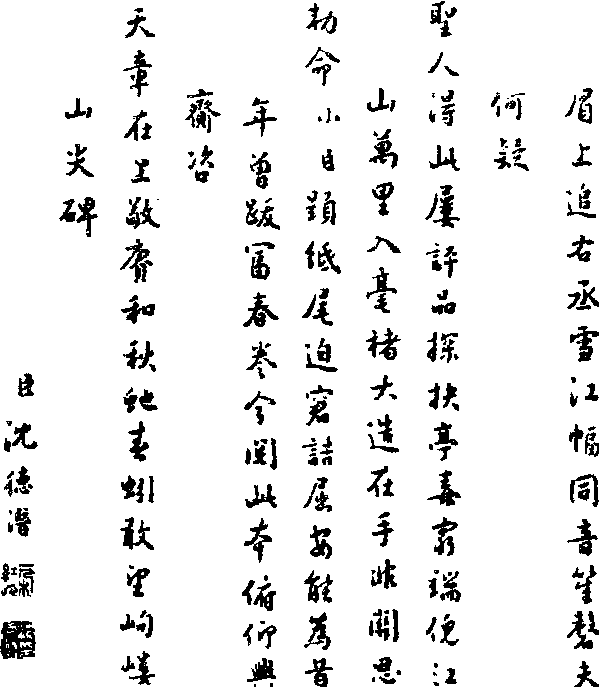 眉上追右丞雪江幅同音笙磬夫
何疑
聖人得此屢評品探扶亭毒窮端倪江
山萬里入毫楮大造在手非關思
勅命小臣題紙尾迫窘詰屈安能為昔
年曾跋富春卷今閱此本俯仰興
齎咨
天章在上敬賡和秋蛇春蚓敢望岣嶁
山尖碑
臣沈德潛